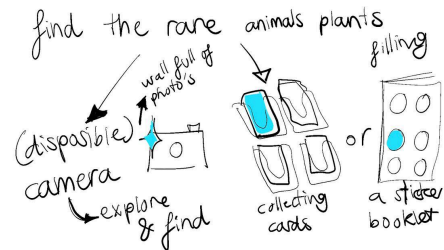 find the rare animals plants
wall full of
photo's
(disposible)
camera
explore
& find
collecting
cards
or
filling
a sticker
booklet